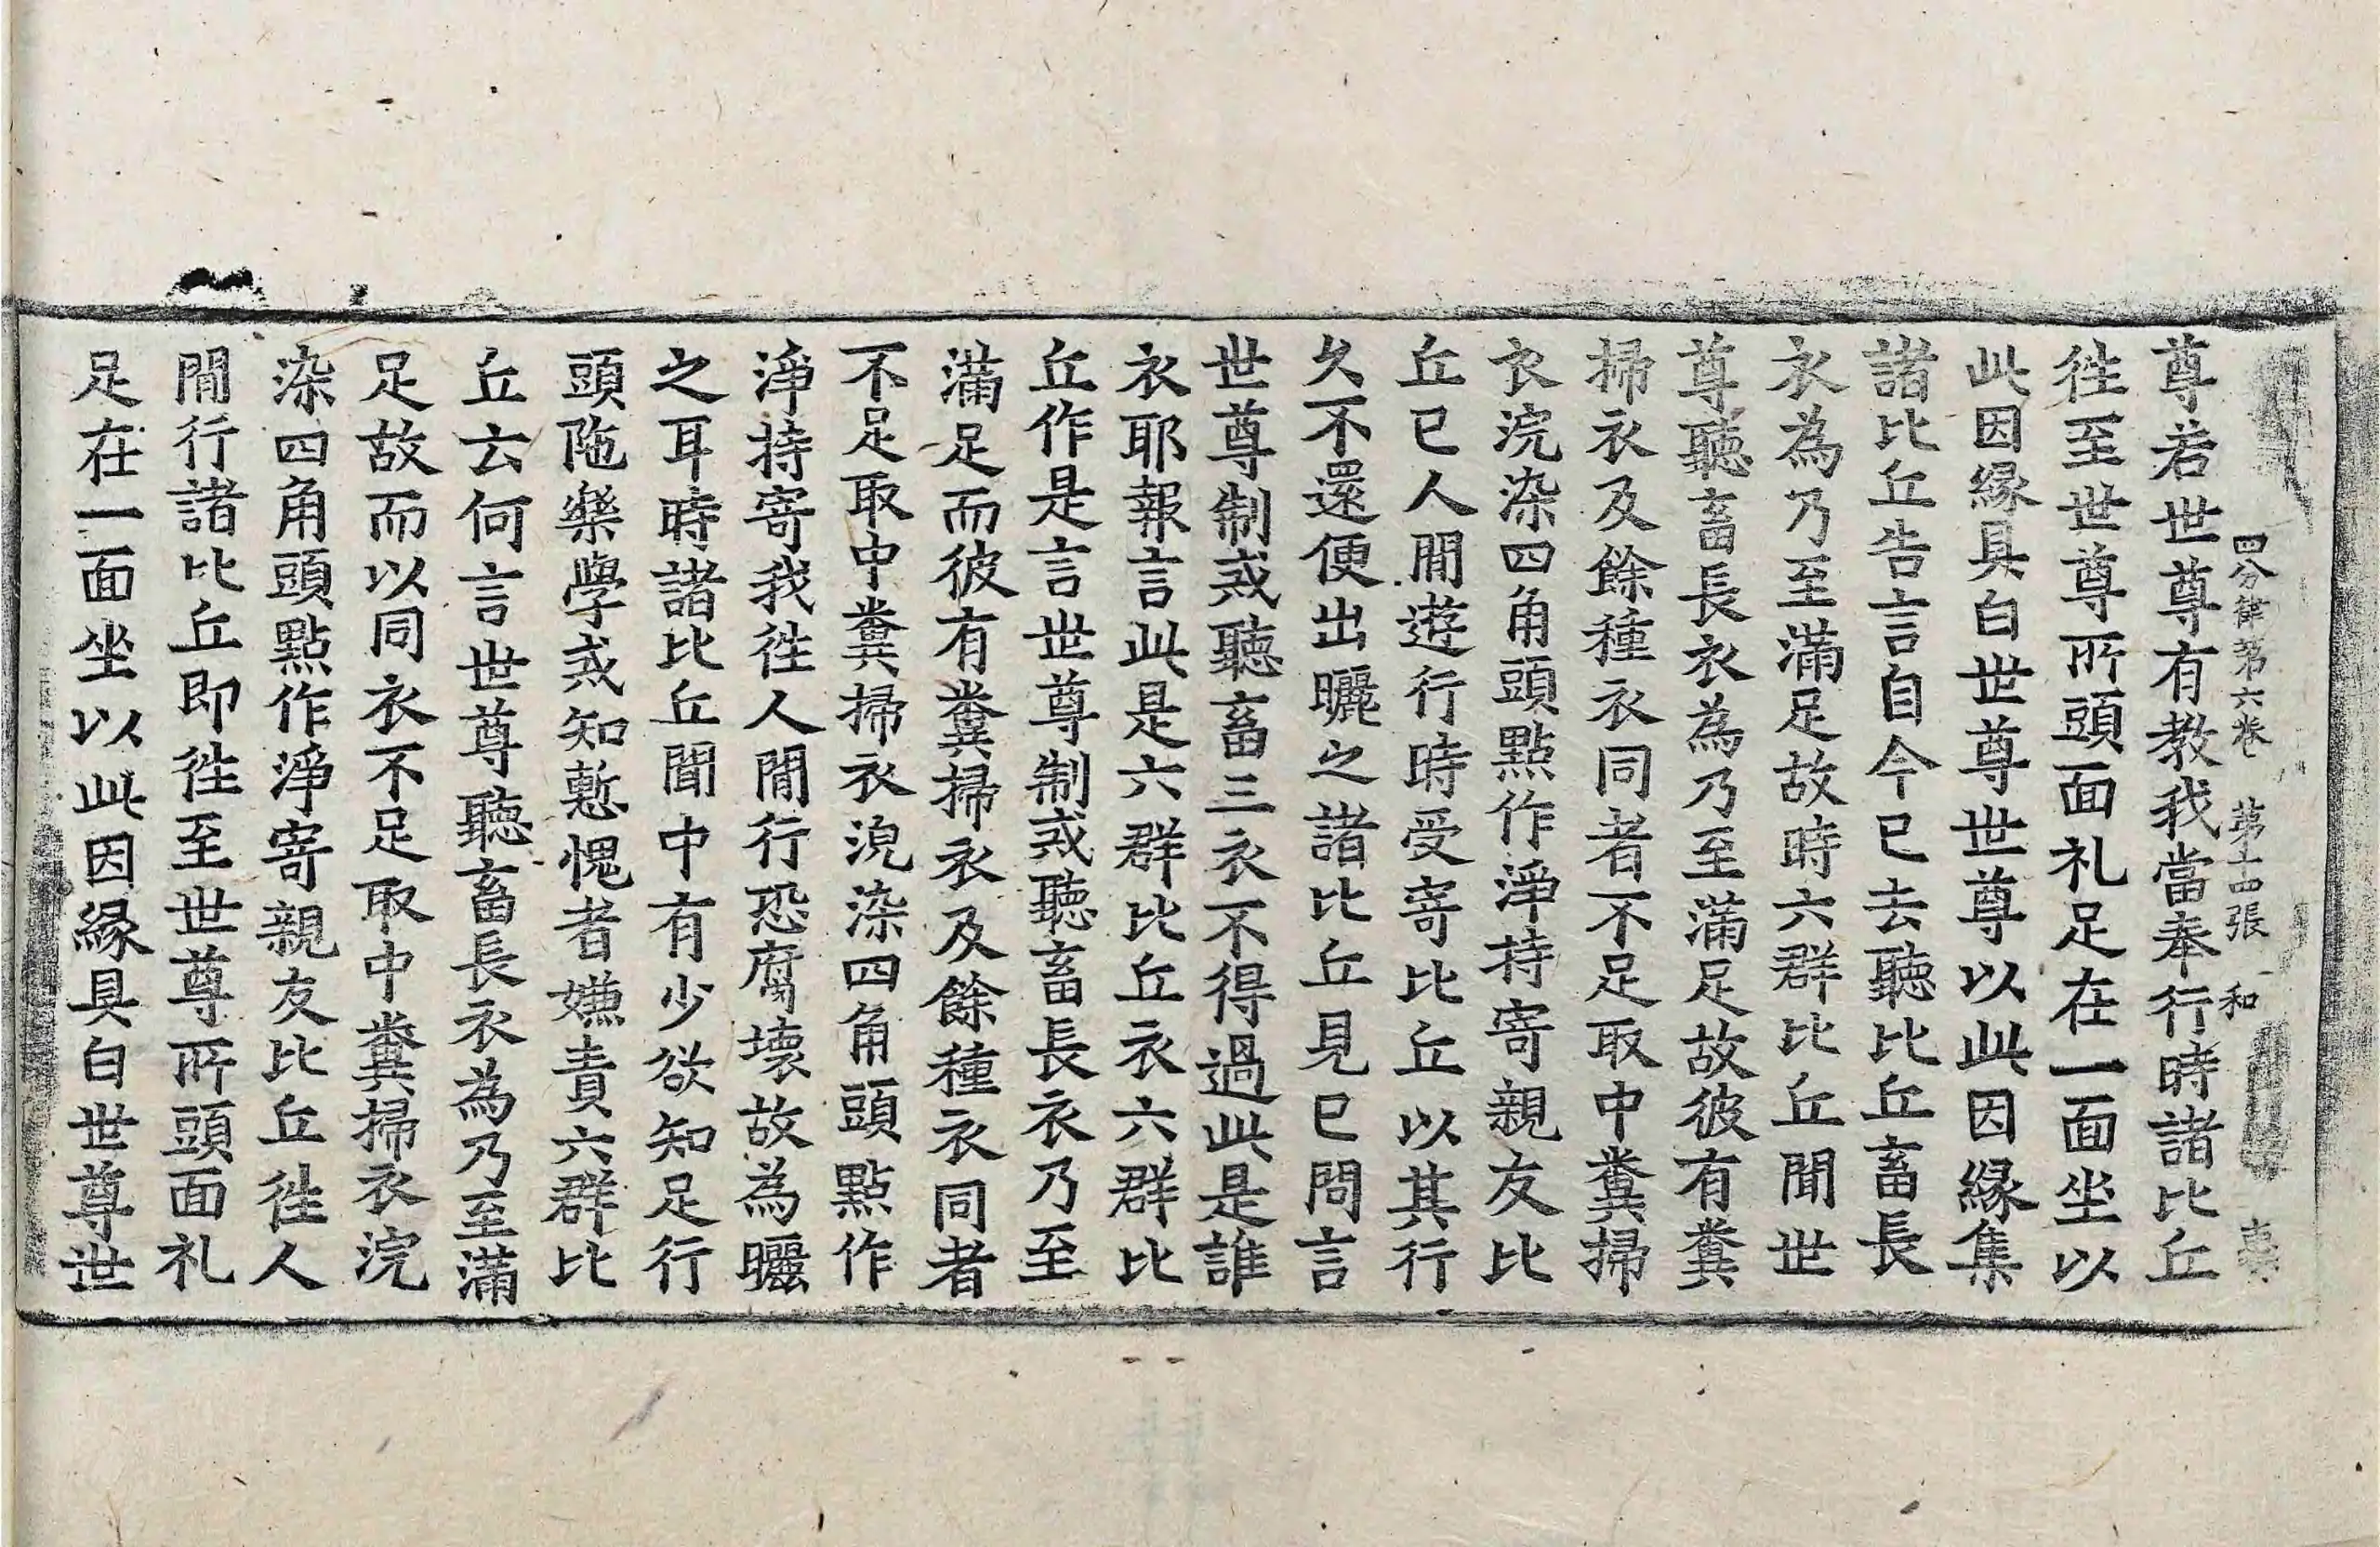 四分律第六卷　第十四張　和
尊若世尊有教我當奉行時諸比丘
徃至世尊所頭面礼足在一面坐以
此因縁具白世尊世尊以此因縁集
諸比丘告言自今已去聽比丘畜長
衣為乃至滿足故時六群比丘聞世
尊聽畜長衣為乃至滿足故彼有糞
掃衣及餘種衣同者不足取中糞掃
衣浣染四角頭點作淨持寄親友比
丘已人間遊行時受寄比丘以其行
久不還便出曬之諸比丘見已問言
世尊制戒聽畜三衣不得過此是誰
衣耶報言此是六群比丘衣六群比
丘作是言世尊制戒聽畜長衣乃至
滿足而彼有糞掃衣及餘種衣同者
不足取中糞掃衣浣染四角頭點作
淨持寄我徃人間行恐腐壞故為曬
之耳時諸比丘聞中有少欲知足行
頭陁樂學戒知慙愧者嫌責六群比
丘云何言世尊聽畜長衣為乃至滿
足故而以同衣不足取中糞掃衣浣
染四角頭點作淨寄親友比丘徃人
間行諸比丘即徃至世尊所頭面礼
足在一面坐以此因縁具白世尊世